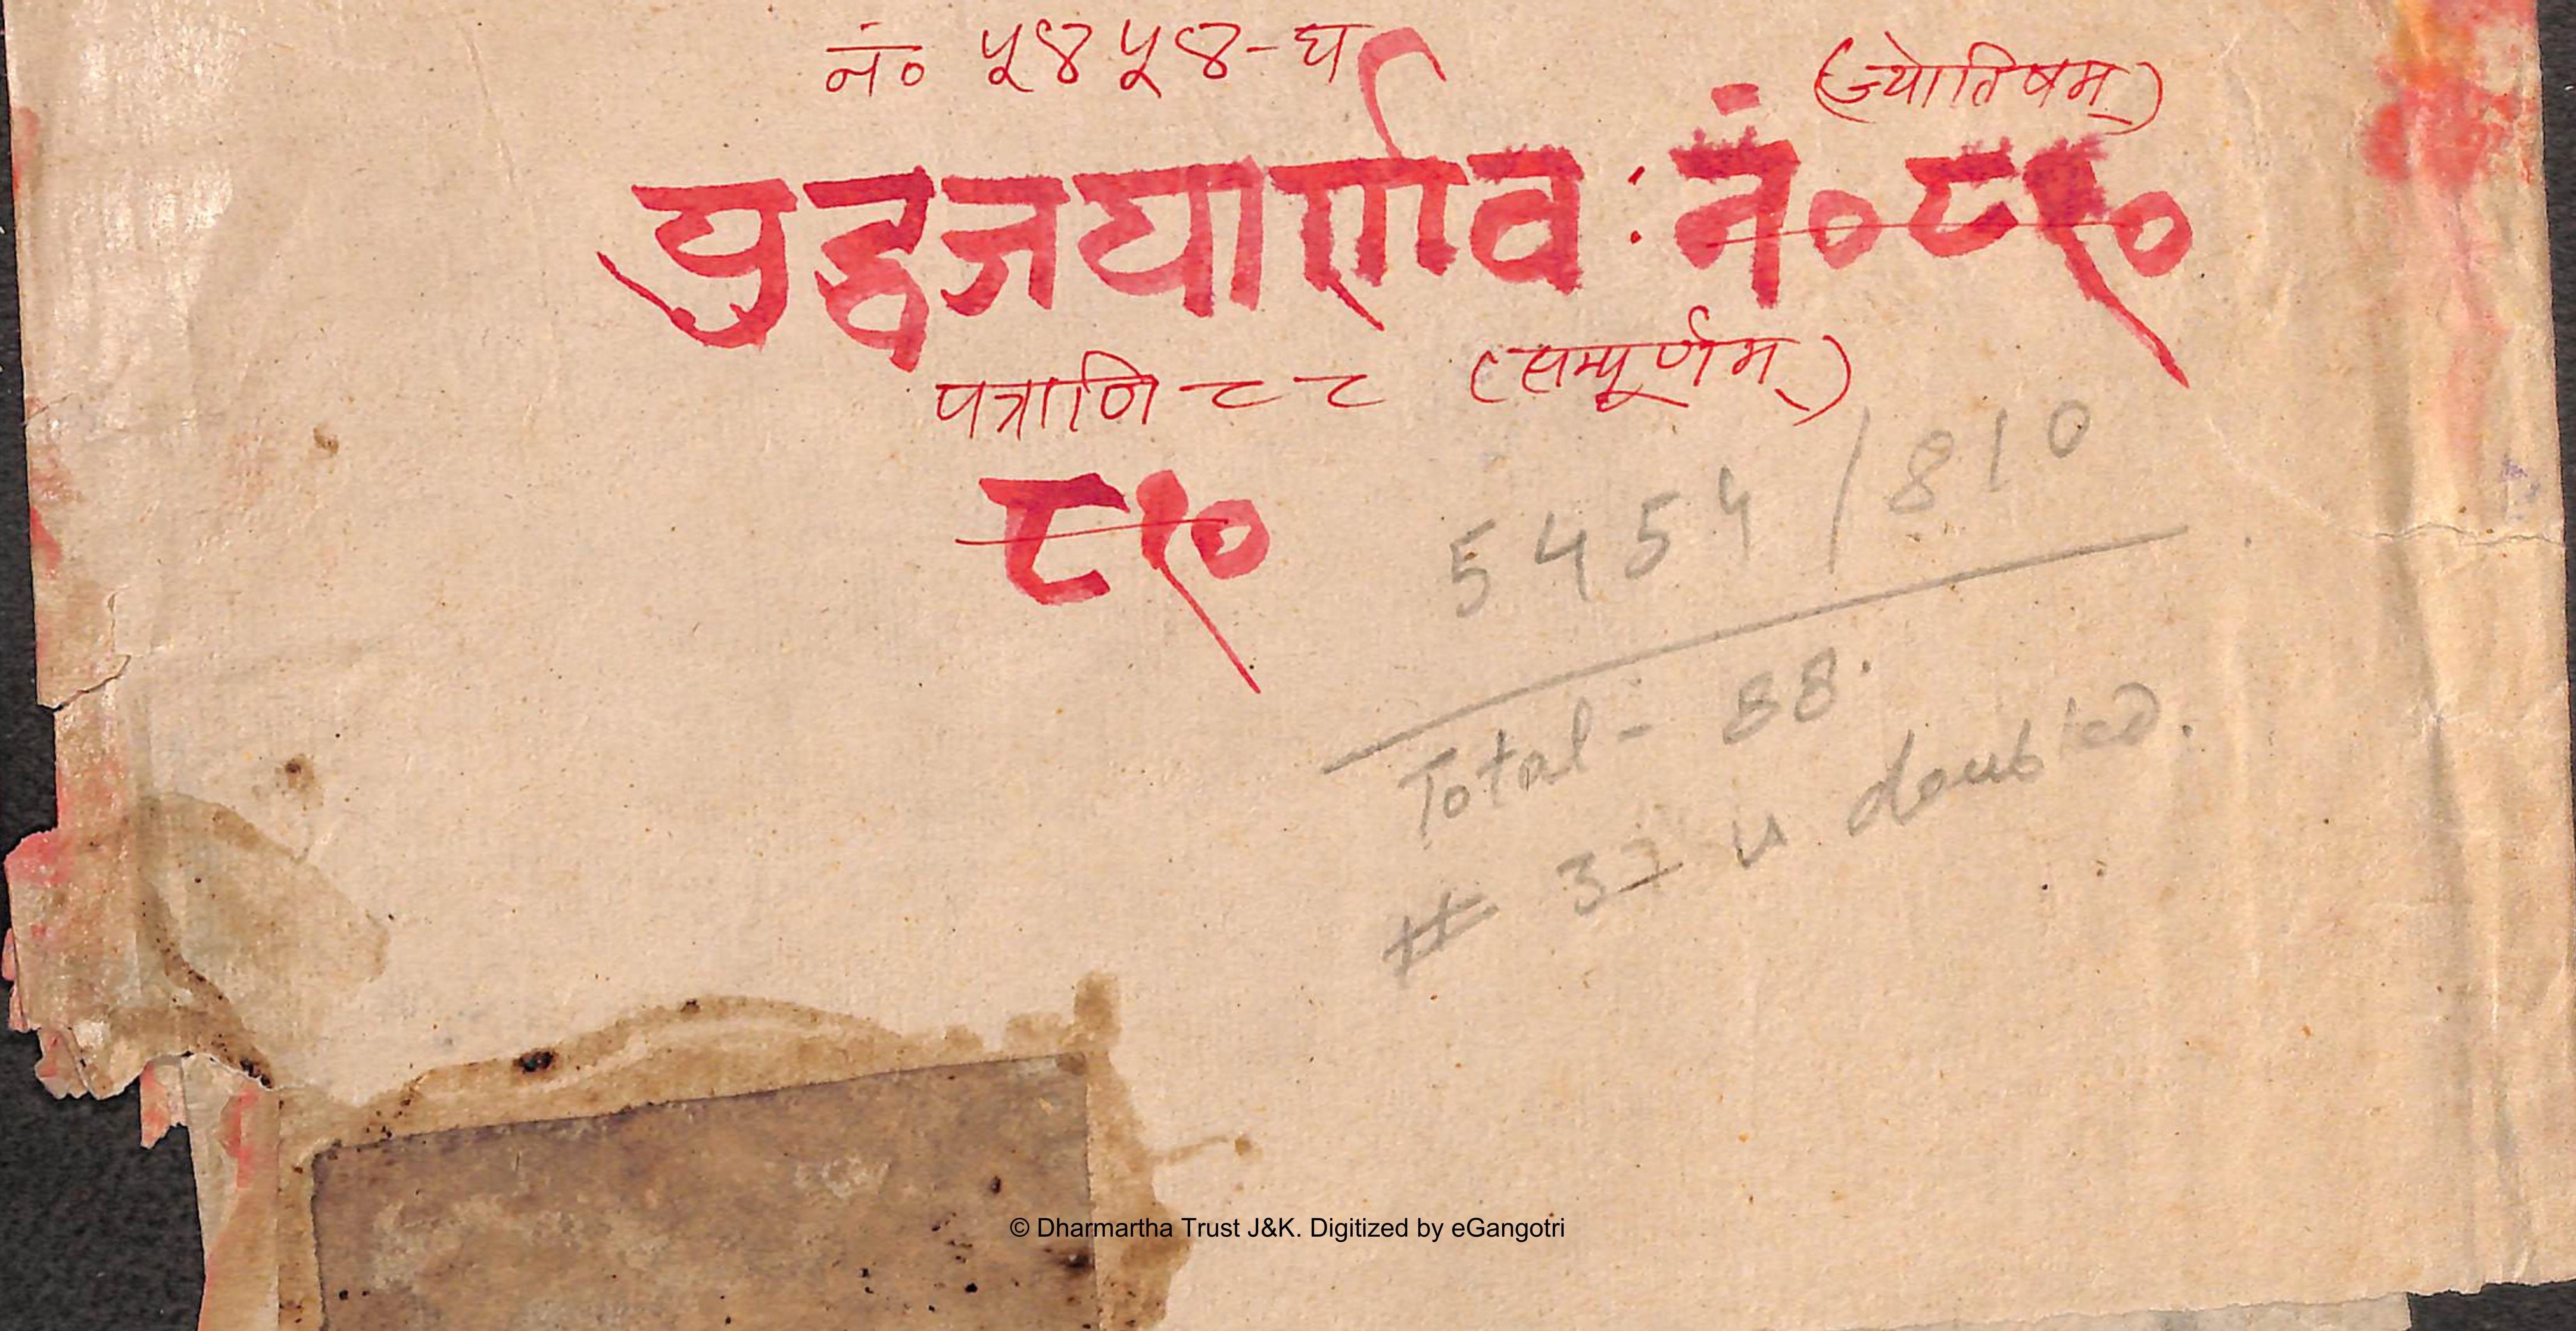 नं० ५४५४-घ
(ज्योतिषम्)
युद्धजयार्णवः नं० ८१०
पत्राणि - ८८ (सम्पूर्णम्)
८१०
5454/810
Total - 88.
# 37 is doubled.
© Dharmartha Trust J&K. Digitized by eGangotri